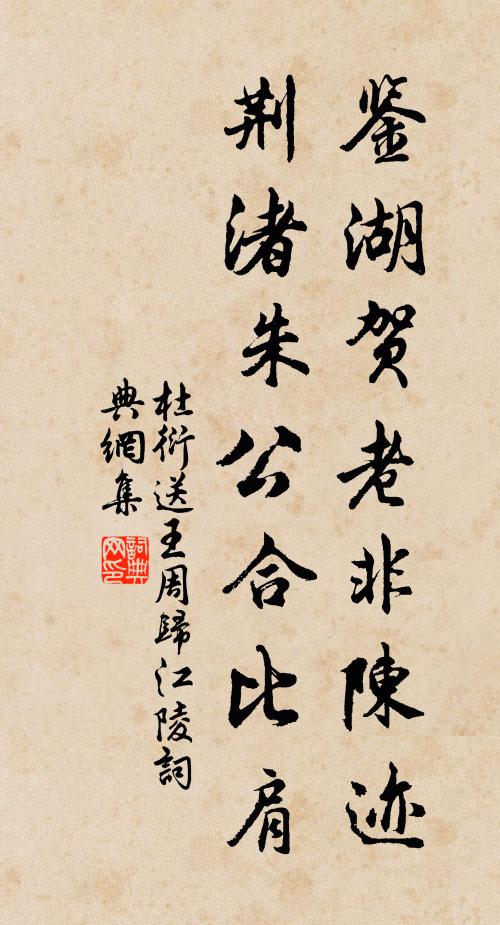 鉴湖贺老非陳迹
荆渚朱公合比肩
杜衍送王周歸江陵詞
典網集
詞典网印